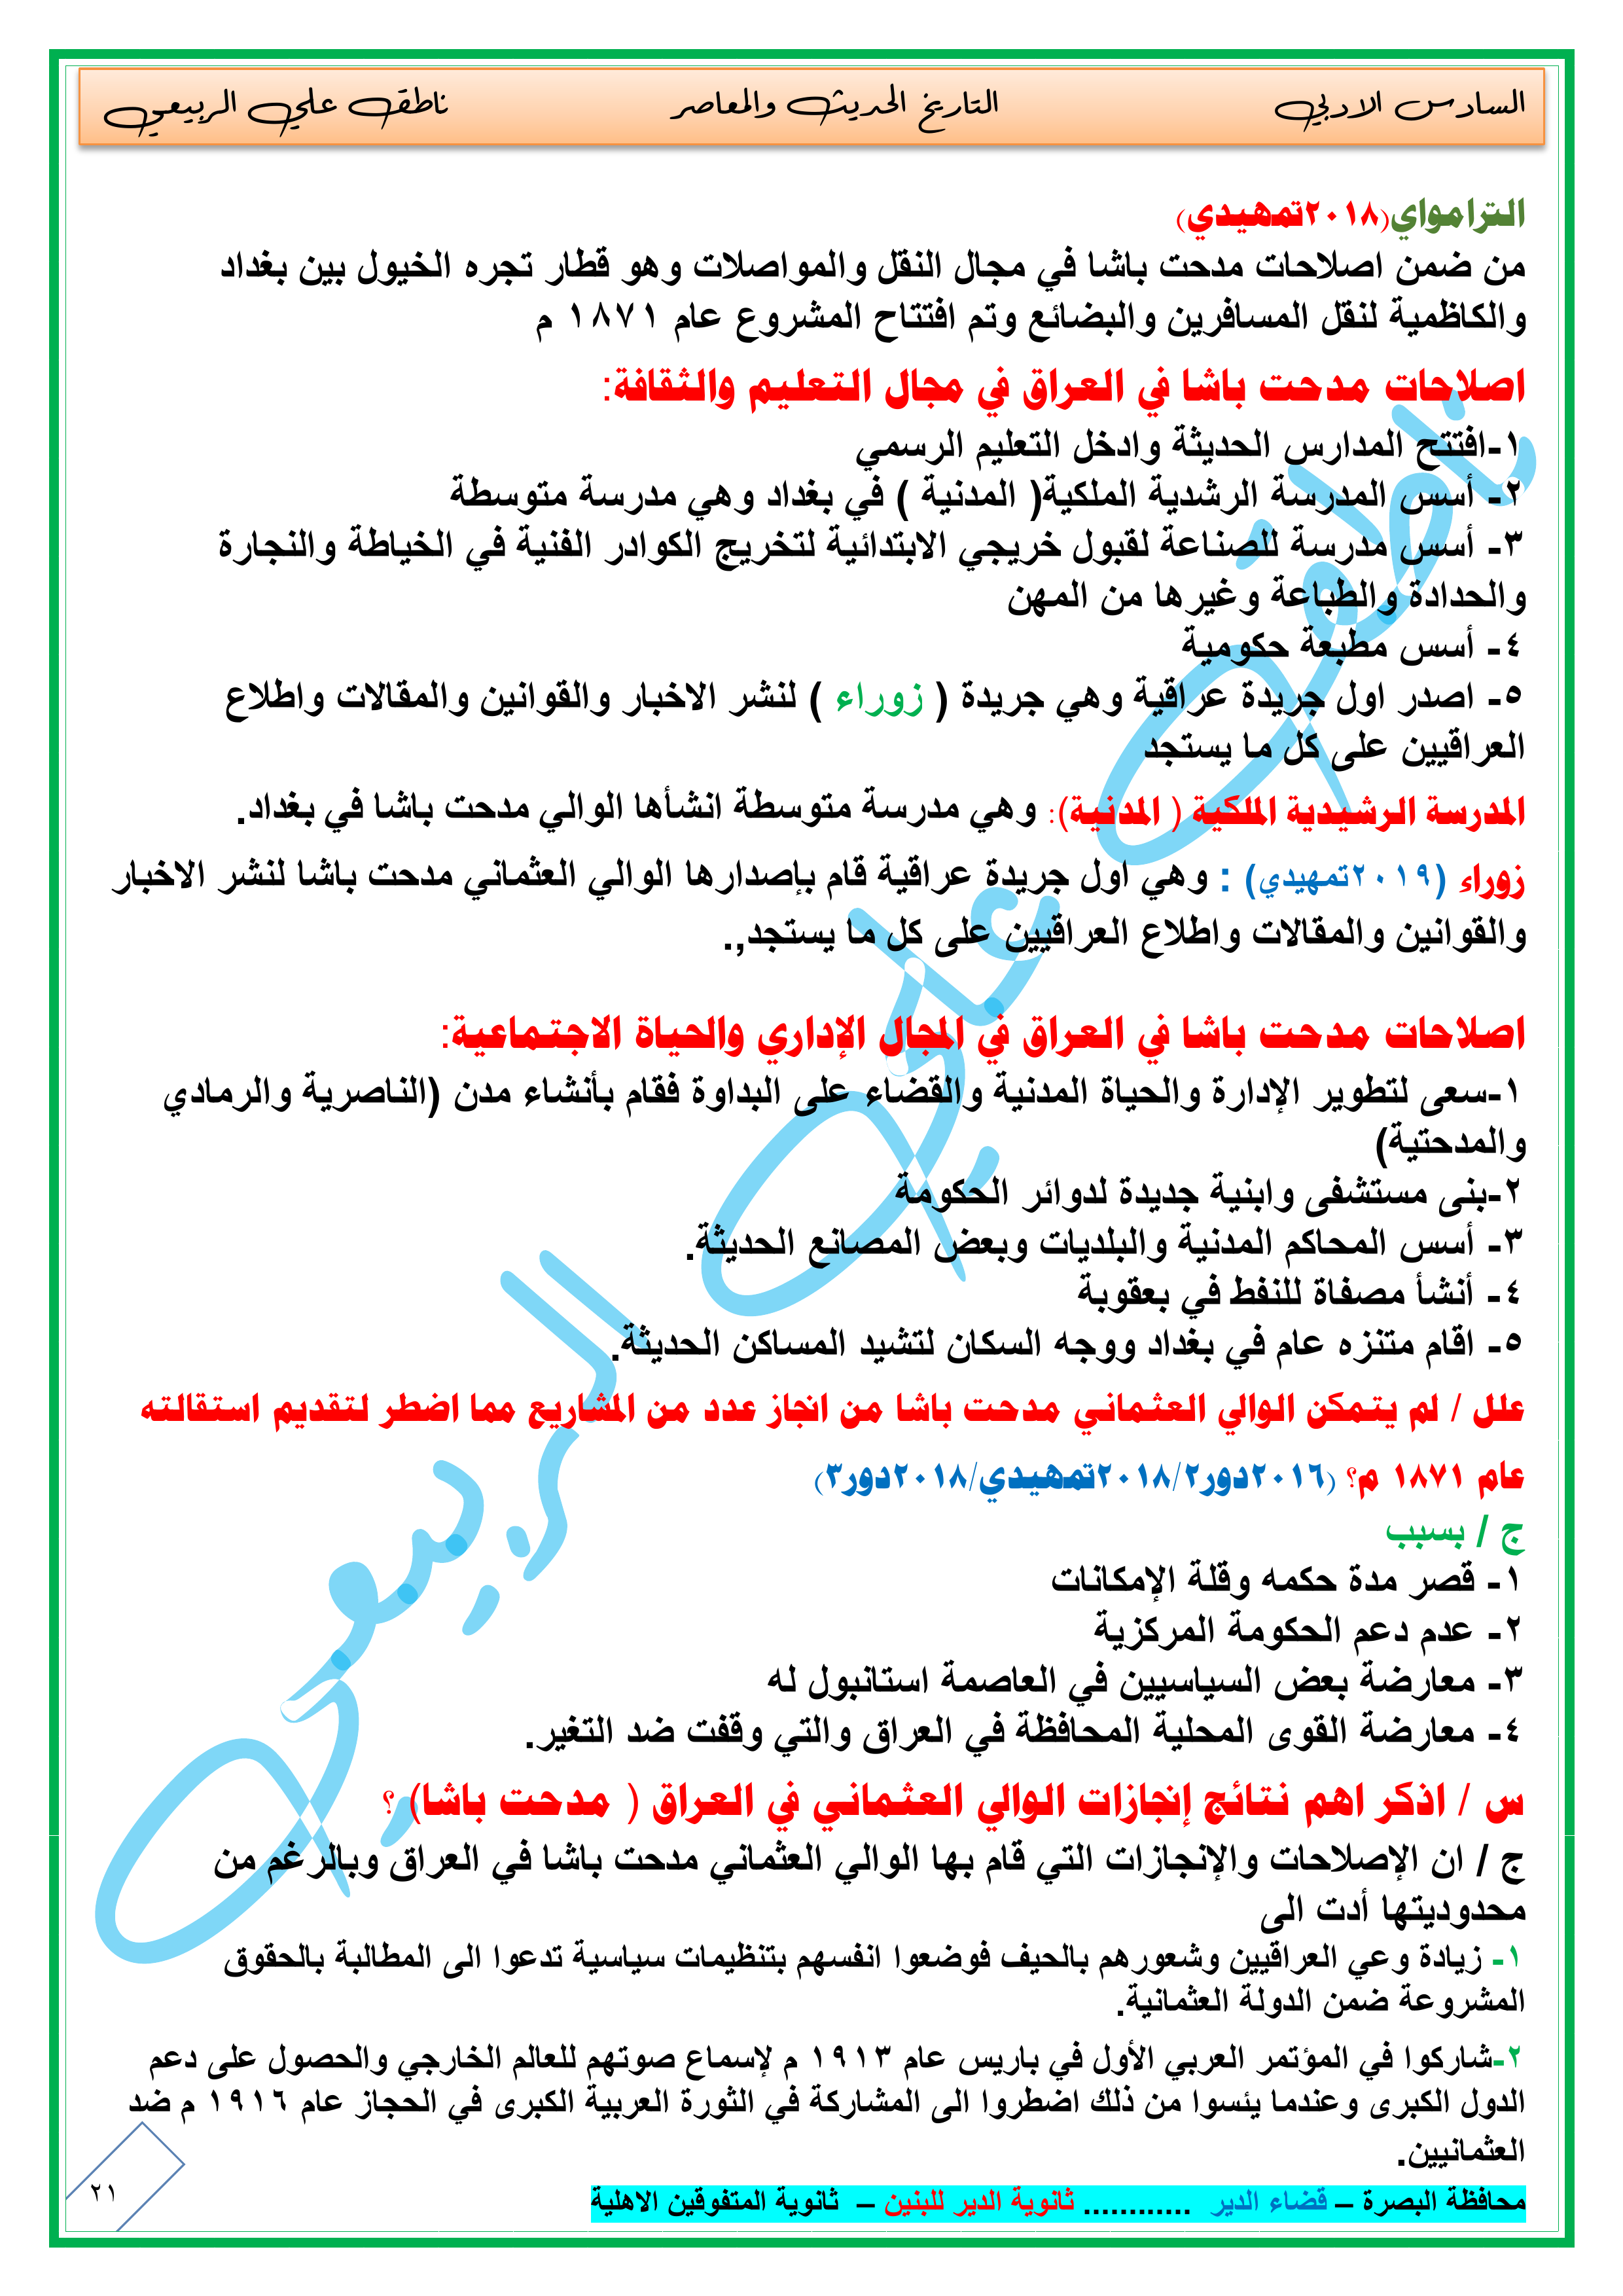 السادس الادبي التاريخ الحديث والمعاصر ناطق علي الربيعي
الترامواي(٢٠١٨تمهيدي)
من ضمن اصلاحات مدحت باشا في مجال النقل والمواصلات وهو قطار تجره الخيول بين بغداد
والكاظمية لنقل المسافرين والبضائع وتم افتتاح المشروع عام ١٨٧١ م
اصلاحات مدحت باشا في العراق في مجال التعليم والثقافة:
١-افتتح المدارس الحديثة وادخل التعليم الرسمي
٢- أسس المدرسة الرشدية الملكية( المدنية ) في بغداد وهي مدرسة متوسطة
٣- أسس مدرسة للصناعة لقبول خريجي الابتدائية لتخريج الكوادر الفنية في الخياطة والنجارة
والحدادة والطباعة وغيرها من المهن
٤- أسس مطبعة حكومية
٥- اصدر اول جريدة عراقية وهي جريدة ( زوراء ) لنشر الاخبار والقوانين والمقالات واطلاع
العراقيين على كل ما يستجد
المدرسة الرشيدية الملكية ( المدنية): وهي مدرسة متوسطة انشأها الوالي مدحت باشا في بغداد.
زوراء (٢٠١٩تمهيدي) : وهي اول جريدة عراقية قام بإصدارها الوالي العثماني مدحت باشا لنشر الاخبار
والقوانين والمقالات واطلاع العراقيين على كل ما يستجد,.
اصلاحات مدحت باشا في العراق في المجال الإداري والحياة الاجتماعية:
١-سعى لتطوير الإدارة والحياة المدنية والقضاء على البداوة فقام بأنشاء مدن (الناصرية والرمادي
والمدحتية)
٢-بنى مستشفى وابنية جديدة لدوائر الحكومة
٣- أسس المحاكم المدنية والبلديات وبعض المصانع الحديثة.
٤- أنشأ مصفاة للنفط في بعقوبة
٥- اقام متنزه عام في بغداد ووجه السكان لتشيد المساكن الحديثة.
علل / لم يتمكن الوالي العثماني مدحت باشا من انجاز عدد من المشاريع مما اضطر لتقديم استقالته
عام ١٨٧١ م؟ (٢٠١٦دور٢٠١٨/٢تمهيدي/٢٠١٨دور٣)
ج / بسبب
١- قصر مدة حكمه وقلة الإمكانات
٢- عدم دعم الحكومة المركزية
٣- معارضة بعض السياسيين في العاصمة استانبول له
٤- معارضة القوى المحلية المحافظة في العراق والتي وقفت ضد التغير.
س / اذكر اهم نتائج إنجازات الوالي العثماني في العراق ( مدحت باشا) ؟
ج / ان الإصلاحات والإنجازات التي قام بها الوالي العثماني مدحت باشا في العراق وبالرغم من
محدوديتها أدت الى
١- زيادة وعي العراقيين وشعورهم بالحيف فوضعوا انفسهم بتنظيمات سياسية تدعوا الى المطالبة بالحقوق
المشروعة ضمن الدولة العثمانية.
٢-شاركوا في المؤتمر العربي الأول في باريس عام ١٩١٣ م لإسماع صوتهم للعالم الخارجي والحصول على دعم
الدول الكبرى وعندما يئسوا من ذلك اضطروا الى المشاركة في الثورة العربية الكبرى في الحجاز عام ١٩١٦ م ضد
العثمانيين.
محافظة البصرة – قضاء الدير ............ ثانوية الدير للبنين – ثانوية المتفوقين الاهلية
٢١
ناطق علي الربيعي